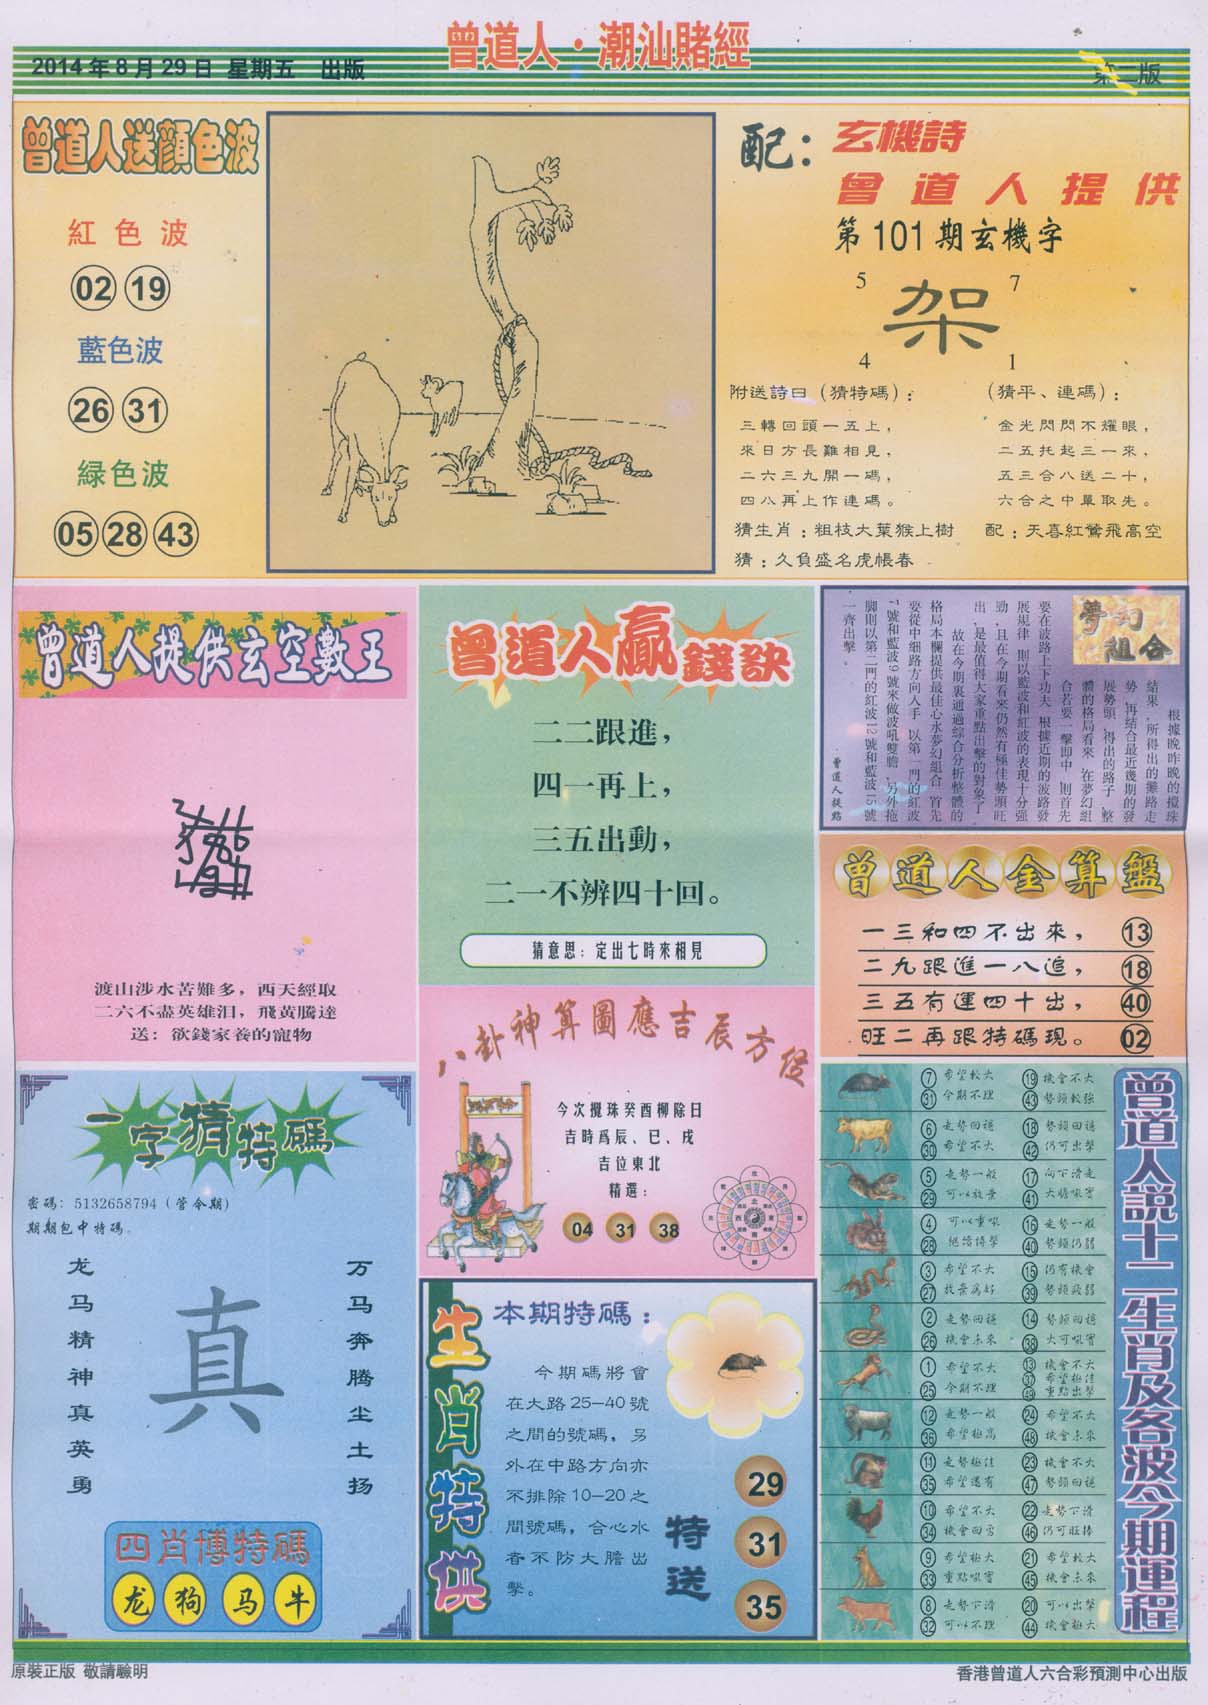 曾道人·潮汕賭經
2014年8月29日 星期五 出版
第二版
曾道人送顔色波
紅色波
02 19
藍色波
26 31
緑色波
05 28 43
配：玄機詩
曾道人提供
第101期玄機字
5 7
架
4 1
附送詩曰（猜特碼）：
三轉回頭一五上，
來日方長難相見，
二六三九開一碼，
四八再上作連碼。
猜生肖：粗枝大葉猴上樹
猜：久負盛名虎帳春
（猜平、連碼）：
金光閃閃不耀眼，
二五托起三一來，
五三合八送二十，
六合之中單取先。
配：天喜紅鶯飛高空
曾道人提供玄空數王
渡山涉水苦難多，西天經取
二六不盡英雄泪，飛黃騰達
送：欲錢家養的寵物
曾道人贏錢訣
二二跟進，
四一再上，
三五出動，
二一不辨四十回。
猜意思：定出七時來相見
夢幻組合
根據晚昨晚的攪珠
結果,所得出的攤路走
勢,再結合最近幾期的發
展勢頭,得出的路子,整
體的格局看來,在夢幻組
合若要一擊即中,則首先
要在波路上下功夫,根據近期的波路發
展規律,則以藍波和紅波的表現十分強
勁,且在今期看來仍然有極佳勢頭旺
出,是最值得大家重點出擊的對象了。
故在今期裏通過綜合分析整體的
格局本欄提供最佳心水夢幻組合,首先
要從中細路方向入手,以第一門的紅波
7號和藍波9號來做波吼雙膽,另外拖
脚則以第二門的紅波12號和藍波15號
一齊出擊。
曾道人提點
曾道人金算盤
一三和四不出來， 13
二九跟進一八追， 18
三五有運四十出， 40
旺二再跟特碼現。 02
八卦神算圖應吉辰方位
今次攪珠癸酉柳除日
吉時爲辰、巳、戌
吉位東北
精選：
04 31 38
一字猜特碼
密碼：5132658794（管今期）
期期包中特碼。
龙马精神真英勇
真
万马奔腾尘土扬
四肖博特碼
龙 狗 马 牛
生肖特供
本期特碼：
今期碼將會
在大路25—40號
之間的號碼，另
外在中路方向亦
不排除10—20之
間號碼，合心水
者不防大膽出
擊。
特送
29
31
35
曾道人説十二生肖及各波今期運程
7 希望較大 19 機會不大
31 今期不理 43 勢頭較強
6 走勢回穩 18 勢頭回穩
30 希望不大 42 仍可出擊
5 走勢一般 17 向下滑走
29 可以放棄 41 大膽吼實
4 可以重吼 16 走勢一般
28 繼續搏擊 40 勢頭仍弱
3 希望不大 15 仍有機會
27 放棄爲好 39 勢頭疲弱
2 走勢回穩 14 勢頭回穩
26 機會未來 38 大可吼實
1 希望不大 13 機會不大
25 今期不理 37 希望極佳
49 重點出擊
12 走勢一般 24 希望不大
36 希望極高 48 機會未來
11 走勢極佳 23 機會不大
35 希望還有 47 勢頭回穩
10 希望不大 22 走勢下滑
34 機會回勇 46 仍可旺捧
9 希望極大 21 希望較大
33 重點吼實 45 機會未來
8 走勢下滑 20 可以出擊
32 可以不理 44 機會極大
原裝正版 敬請驗明
香港曾道人六合彩預測中心出版